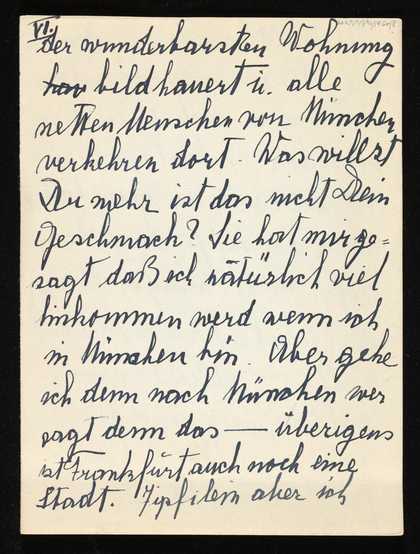 VI.
der wunderbarsten Wohnung
hat bildhauert u. alle
netten Menschen von München
verkehren dort. Was willst
Du mehr ist das nicht Dein
Geschmack? Sie hat mir ge=
sagt daß ich natürlich viel
hinkommen werd wenn ich
in München bin. Aber gehe
ich denn nach München wer
sagt denn das — überigens
ist Frankfurt auch noch eine
Stadt. Zipfilein aber ich